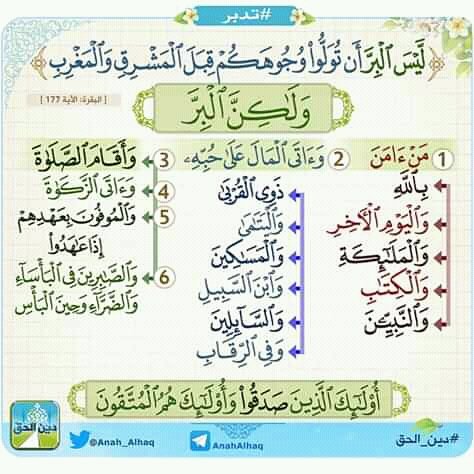 #تدبر
﴿ لَّيْسَ ٱلْبِرَّ أَن تُوَلُّوا۟ وُجُوهَكُمْ قِبَلَ ٱلْمَشْرِقِ وَٱلْمَغْرِبِ ﴾
[ البقرة: الآية 177 ]
وَلَـٰكِنَّ ٱلْبِرَّ
1 مَنْ ءَامَنَ
بِٱللَّهِ
وَٱلْيَوْمِ ٱلْـَٔاخِرِ
وَٱلْمَلَـٰٓئِكَةِ
وَٱلْكِتَـٰبِ
وَٱلنَّبِيِّـۧنَ
2 وَءَاتَى ٱلْمَالَ عَلَىٰ حُبِّهِۦ
ذَوِى ٱلْقُرْبَىٰ
وَٱلْيَتَـٰمَىٰ
وَٱلْمَسَـٰكِينَ
وَٱبْنَ ٱلسَّبِيلِ
وَٱلسَّآئِلِينَ
وَفِى ٱلرِّقَابِ
3 وَأَقَامَ ٱلصَّلَوٰةَ
4 وَءَاتَى ٱلزَّكَوٰةَ
5 وَٱلْمُوفُونَ بِعَهْدِهِمْ
إِذَا عَـٰهَدُوا۟
6 وَٱلصَّـٰبِرِينَ فِى ٱلْبَأْسَآءِ
وَٱلضَّرَّآءِ وَحِينَ ٱلْبَأْسِ
أُو۟لَـٰٓئِكَ ٱلَّذِينَ صَدَقُوا۟ وَأُو۟لَـٰٓئِكَ هُمُ ٱلْمُتَّقُونَ
#دين_الحق
AnahAlhaq
@Anah_Alhaq
دين الحق